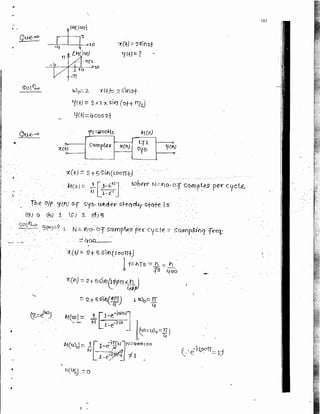 181
|H(ω)|
2
-4
4
ω
∠H(ω)
π
π/2
-4
2 4
ω
-π
Que⇒
x(t) = 2sin2t
y(t) = ?
Sol⇒
ω0 = 2
x(t) = 2 sin2t
y(t) = 2×2× sin (2t + π/2)
y(t) = 4cos2t
Que⇒
fs = 400Hz
h(n)
x(t)
Sampler
x(n)
LTI
sys
y(n)
x(t) = 2 + 5 sin(100πt)
H(z) = 1/N [1-z^-N / 1-z^-1]
where N = no. of samples per cycle
The o/p y(n) of sys. under steady state is
(a) 0 (b) 1 (c) 2 (d) 5
Sol⇒ y(n) = ? ; N = no. of samples per cycle = sampling freq.
= 400
x(t) = 2 + 5 sin(100πt)
t = nTs = n/fs = n/400
x(n) = 2 + 5 sin(100π × n/400)
= 2 + 5 sin(πn/4) ; ω0 = π/4
(z = e^jω)
H(ω) = 1/N [1-e^-jωN / 1-e^-jω]
(ω = ω0 = π/4)